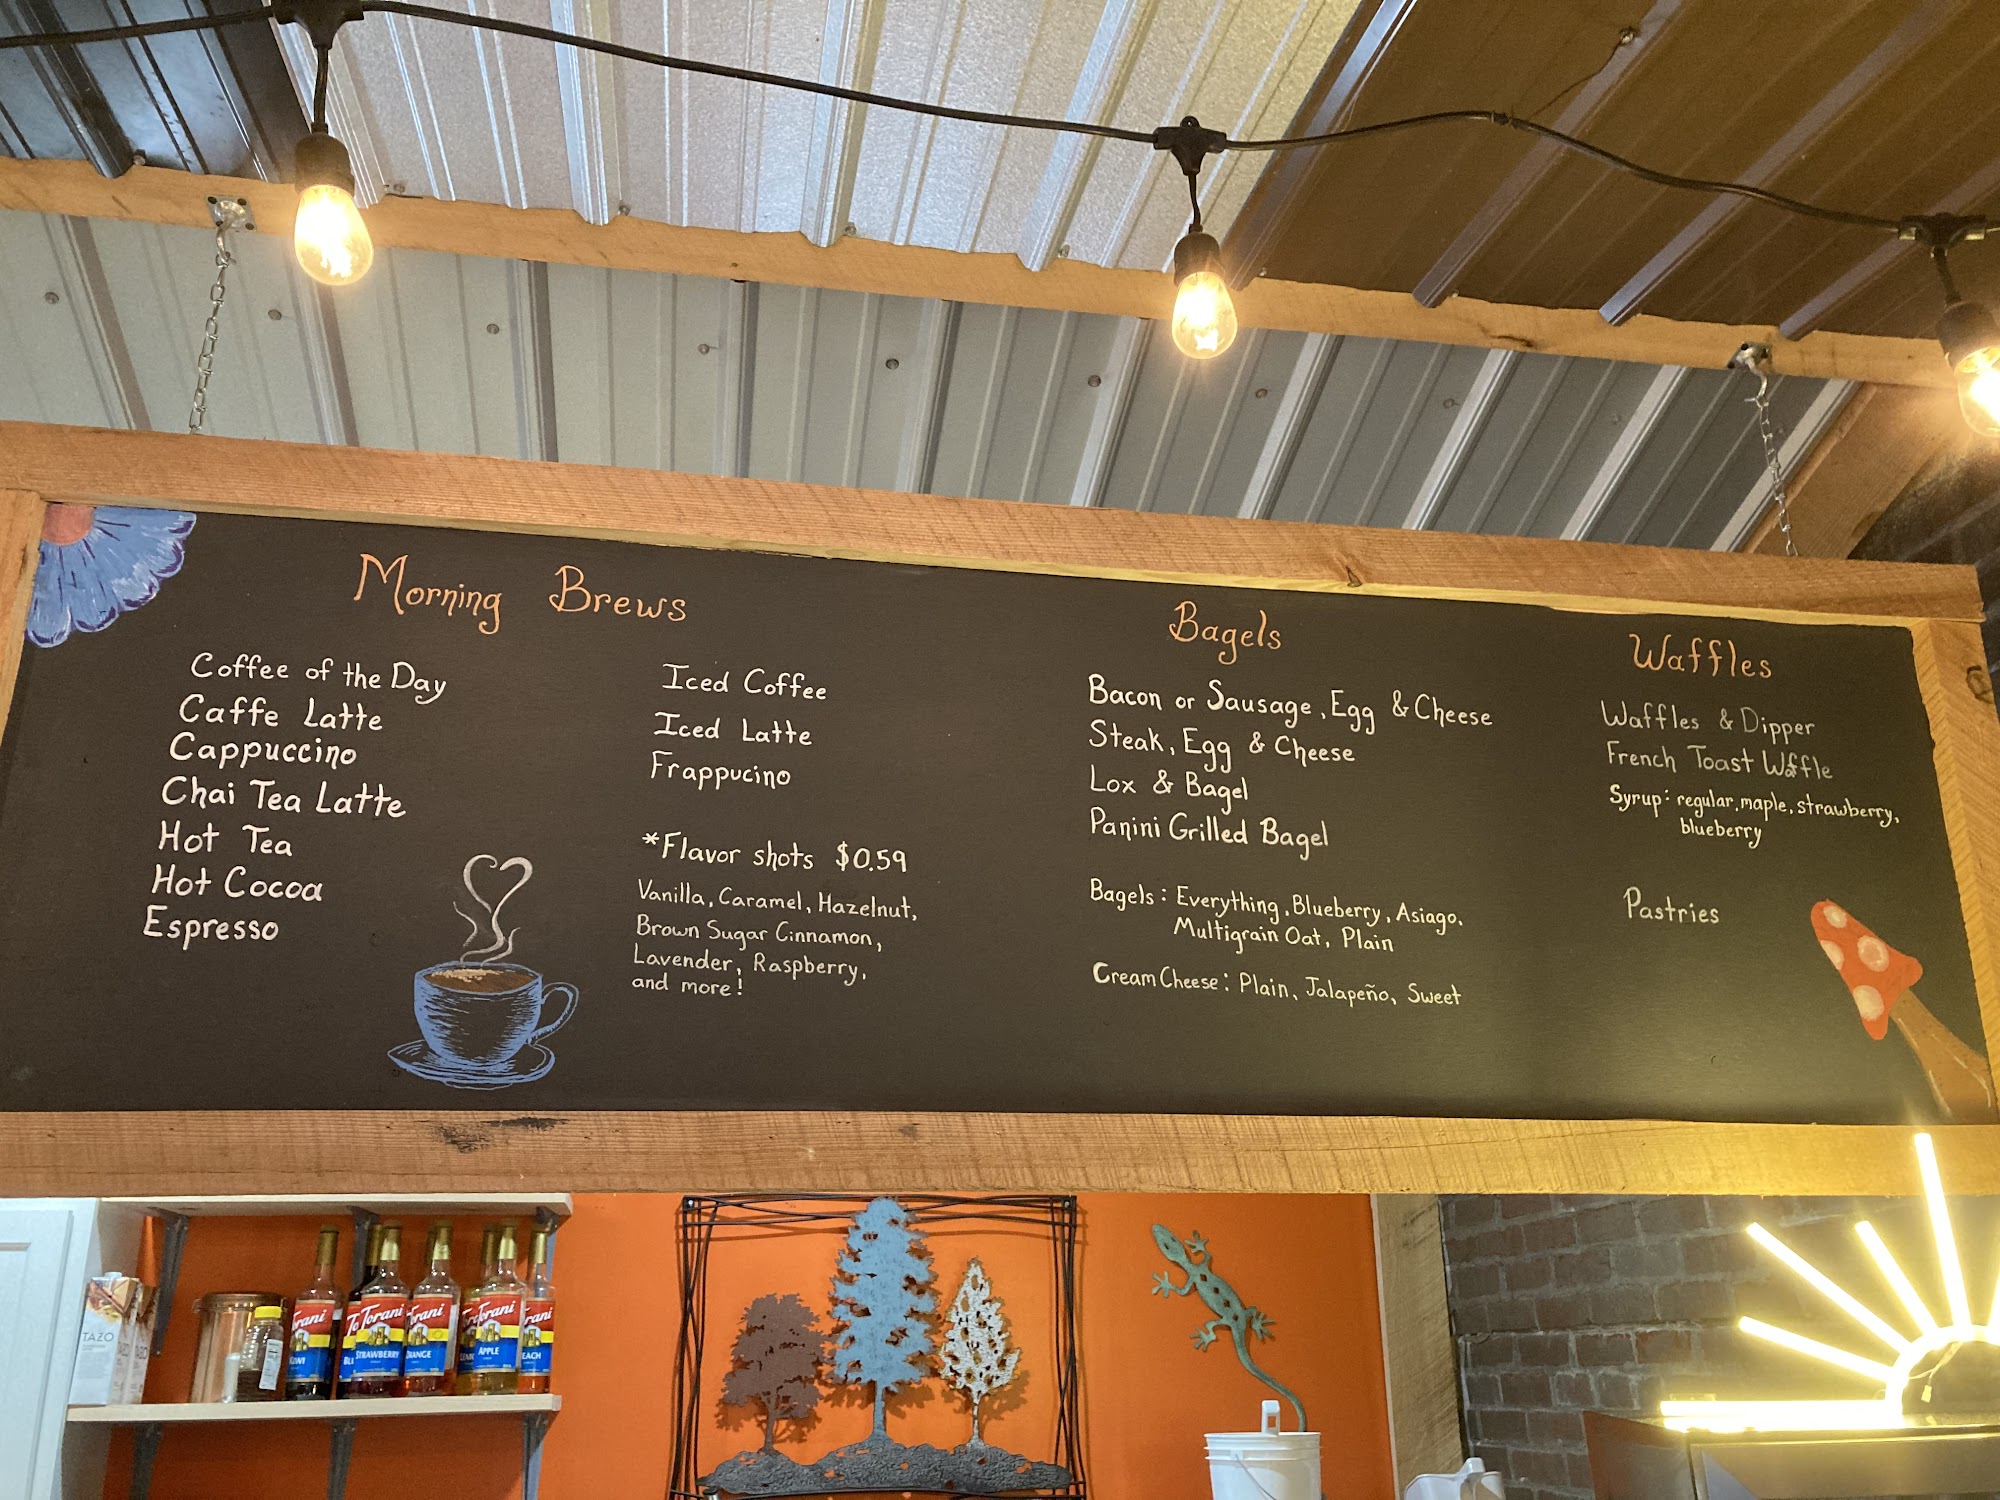 Morning Brews
Coffee of the Day
Caffe Latte
Cappuccino
Chai Tea Latte
Hot Tea
Hot Cocoa
Espresso
Iced Coffee
Iced Latte
Frappucino
*Flavor shots $0.59
Vanilla, Caramel, Hazelnut,
Brown Sugar Cinnamon,
Lavender, Raspberry,
and more!
Bagels
Bacon or Sausage, Egg & Cheese
Steak, Egg & Cheese
Lox & Bagel
Panini Grilled Bagel
Bagels: Everything, Blueberry, Asiago,
Multigrain Oat, Plain
Cream Cheese: Plain, Jalapeño, Sweet
Waffles
Waffles & Dipper
French Toast Waffle
Syrup: regular, maple, strawberry,
blueberry
Pastries
TAZO
Torani
STRAWBERRY
Torani
APPLE